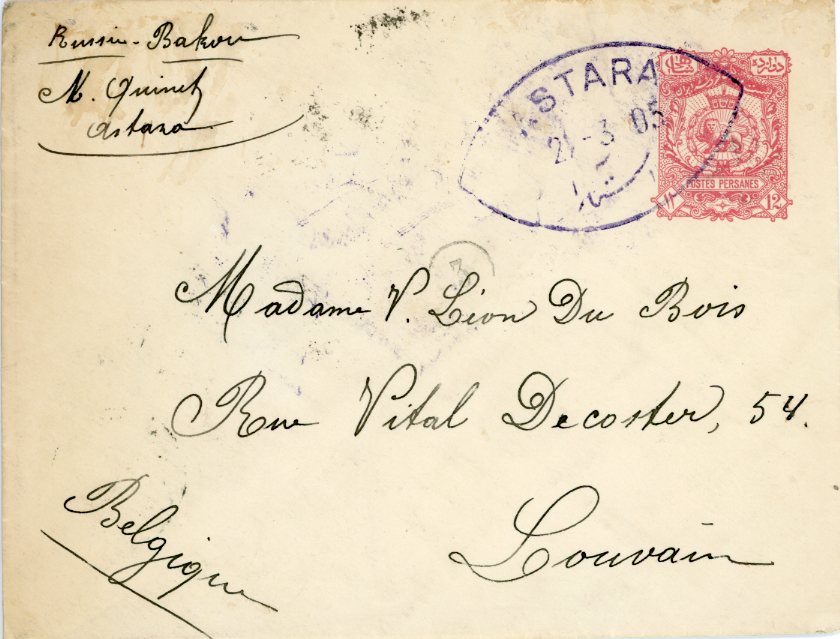 Russie - Bakou
M. Quinet
Astara
ASTARA
2 -3 05
POSTES PERSANES
۱۲ 12
3
Madame V. Léon Du Bois
Rue Vital Decoster, 54.
Louvain
Belgique